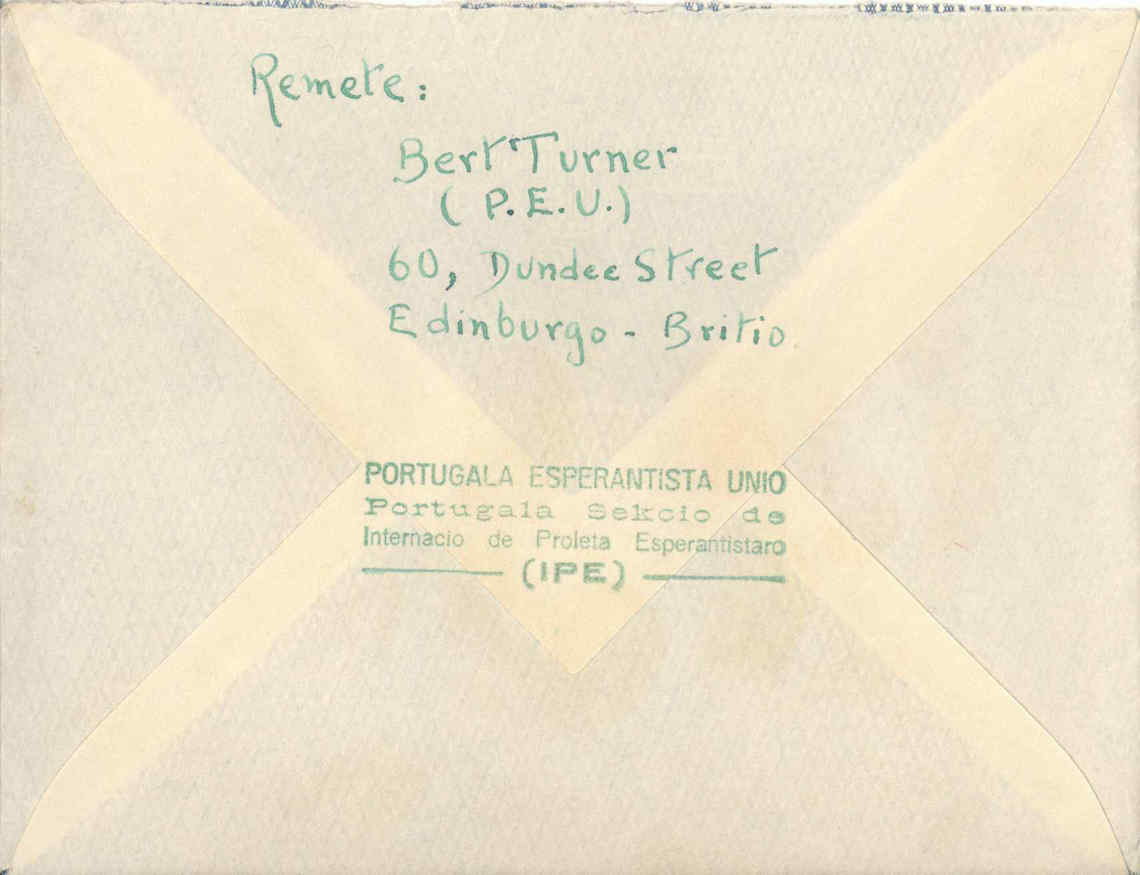 Remete:
Bert Turner
( P.E.U.)
60, Dundee Street
Edinburgo - Britio.
PORTUGALA ESPERANTISTA UNIO
Portugala Sekcio de
Internacio de Proleta Esperantistaro
(IPE)